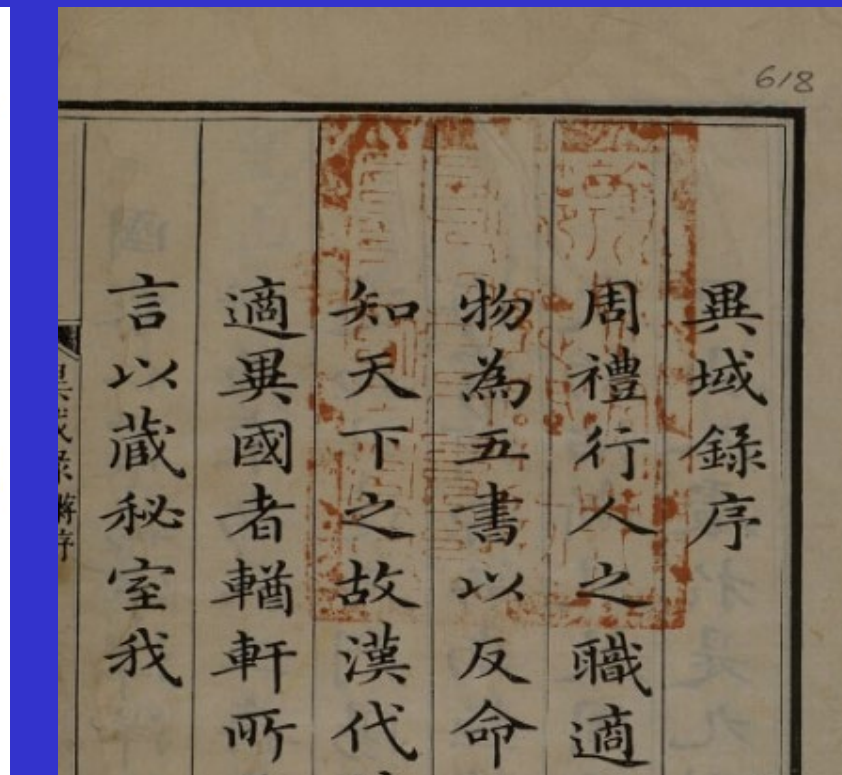 618
異域錄序
周禮行人之職適
物為五書以反命
知天下之故漢代
適異國者輶軒所
言以藏秘室我
異域錄 蔣序